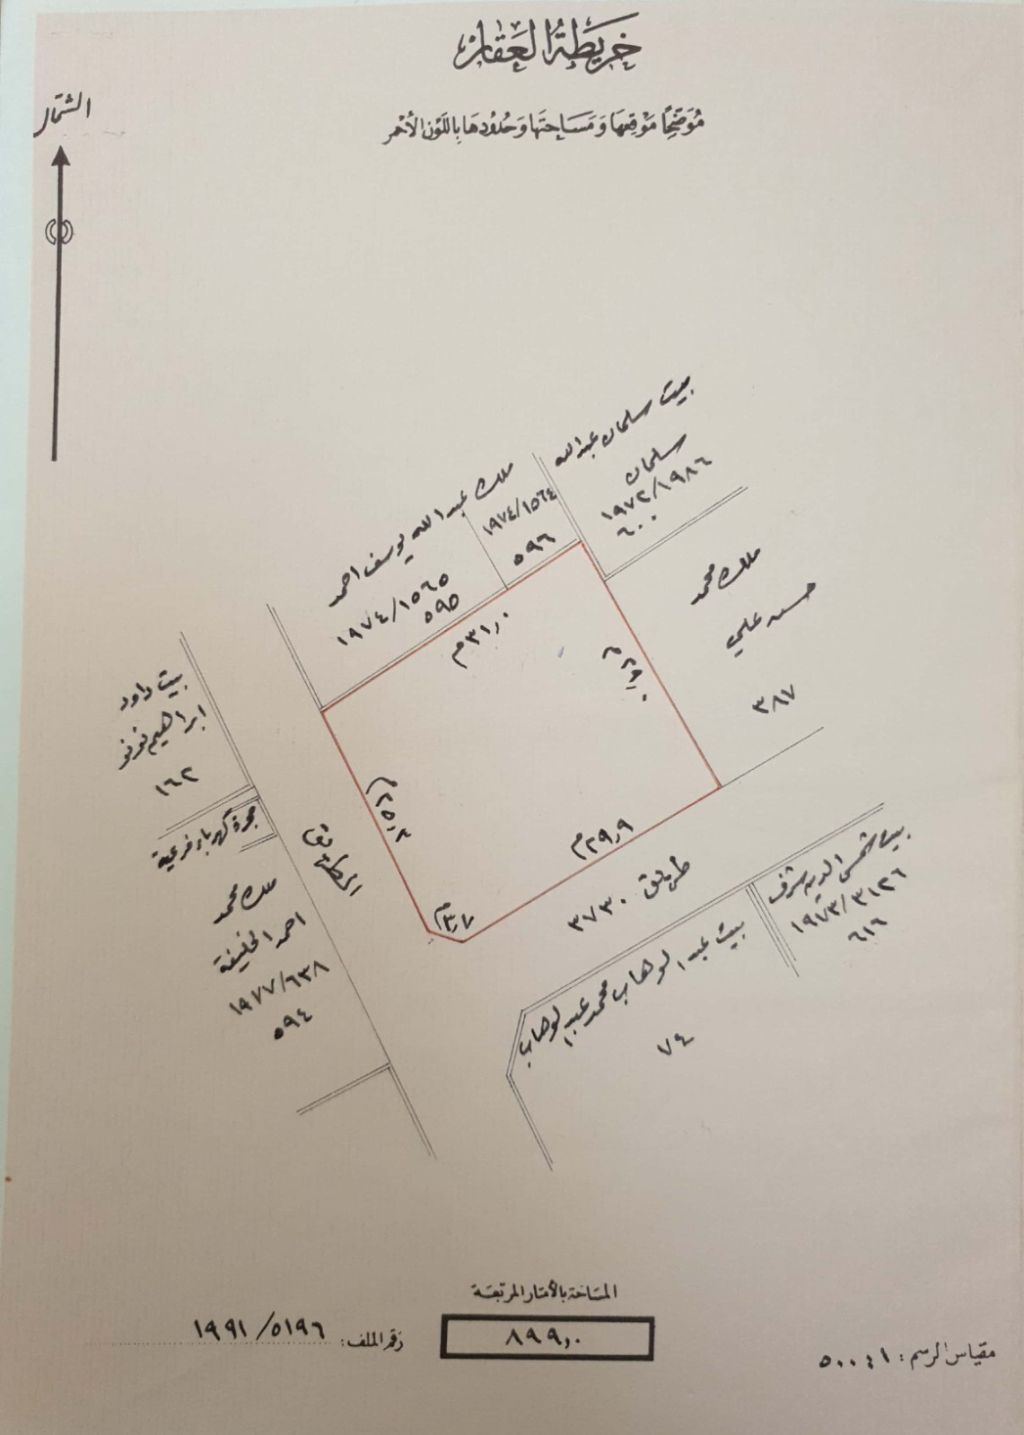 خريطة العقار
موضحًا موقعها ومساحتها وحدودها باللون الأحمر
الشمال
بيت سلمان عبدالله
سلمان
١٩٧٢/١٩٨٦
٦٠٠
ملك عبدالله يوسف احمد
١٩٧٤/١٥٦٥
٥٩٥
١٩٧٤/١٥٦٤
٥٩٦
ملك محمد
حسن علي
٣٨٧
٣١,٠م
٢٩,٠م
٢٥,٢م
٢٩,٩م
٣,٧م
بيت داود
ابراهيم نونو
١٦٢
حجرة كهرباء فرعية
الطريق
ملك محمد
احمد الخليفة
١٩٧٧/٦٣٨
٥٩٤
طريق ٣٧٣٠
بيت شمس الدين شرف
١٩٧٣/٣١٢٦
٦١٦
بيت عبدالوهاب محمد عبدالوهاب
٧٤
المساحة بالأمتار المربعة
٨٩٩,٠
رقم الملف: ١٩٩١/٥١٩٦
مقياس الرسم: